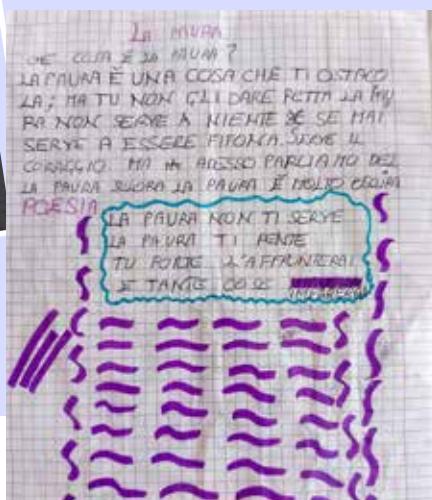 LA PAURA
CHE COSA È LA PAURA?
LA PAURA È UNA COSA CHE TI OSTACO
LA; MA TU NON GLI DARE RETTA LA PAU
RA NON SERVE A NIENTE SE MAI
SERVE A ESSERE FIFONA. SERVE IL
CORAGGIO MA ADESSO PARLIAMO DEL
LA PAURA LA PAURA È MOLTO
POESIA
LA PAURA NON TI SERVE
LA PAURA TI
TU FORTE L'AFFRONTERAI
E TANTE COSE